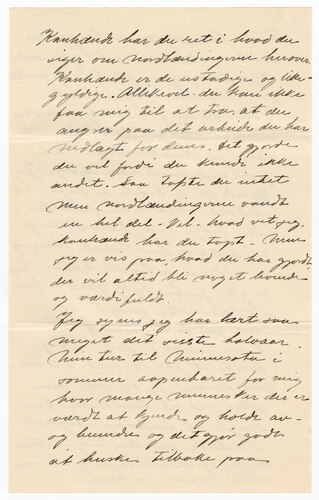 Kanhænde har du ret i hvad du
siger om nordlændingerne herover.
Kanhænde er de ustadige og like-
gyldige. Allikevel du kan ikke
faa mig til at tro, at du
angrer paa det arbeide du har
nedlagt for dem. Det gjorde
du vel fordi du kunde ikke
andet. Saa tapte du intet
men nordlændingerne vandt
en hel del. Vel - hvad vet jeg,
kanhænde har du tapt. Men
jeg er vis paa, hvad du har gjort
der vil altid bli noget
og værdifuldt.
Jeg synes jeg har lært saa
meget det siste halvaar.
Min tur til Minnesota i
sommer aapenbaret for mig
hvor mange mennesker der er
værdt at kjende og holde av -
og beundre og det gjør godt
at huske tilbake paa